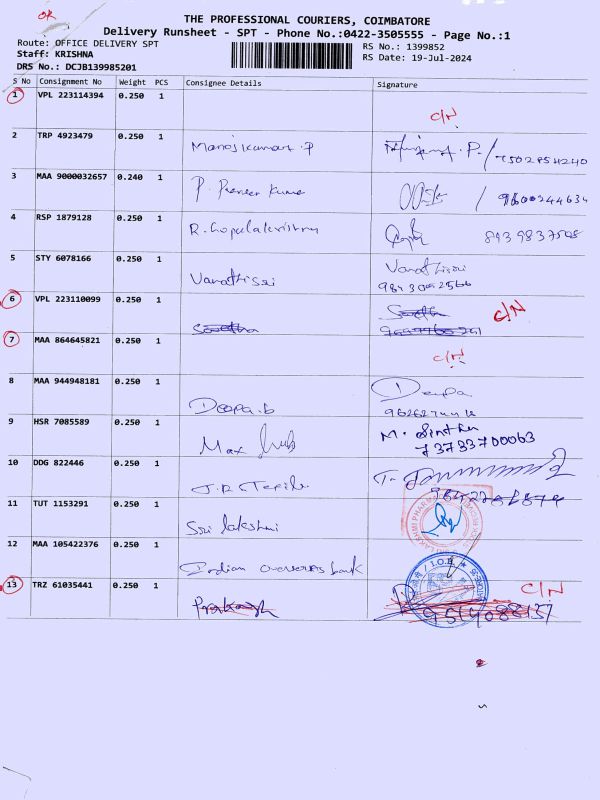 OK
THE PROFESSIONAL COURIERS, COIMBATORE
Delivery Runsheet - SPT - Phone No.:0422-3505555 - Page No.:1
Route: OFFICE DELIVERY SPT
Staff: KRISHNA
DRS No.: DCJB139985201
RS No.: 1399852
RS Date: 19-Jul-2024
S No Consignment No Weight PCS Consignee Details Signature
1 VPL 223114394 0.250 1 C/N
2 TRP 4923479 0.250 1 Manojkumar.P
3 MAA 9000032657 0.240 1 P. Praveen Kumar / 9600244634
4 RSP 1879128 0.250 1 R. Gopalakrishnan
5 STY 6078166 0.250 1 Vanathisri Vanathisri
9843092566
6 VPL 223110099 0.250 1 C/N
7 MAA 864645821 0.250 1 C/N
8 MAA 944948181 0.250 1 Deepa.b Deepa
9 HSR 7085589 0.250 1 Max M.
73733700063
10 DDG 822446 0.250 1
11 TUT 1153291 0.250 1 Sri lakshmi
12 MAA 105422376 0.250 1 Indian overseas bank
I.O.B
13 TRZ 61035441 0.250 1 Prakash C/N